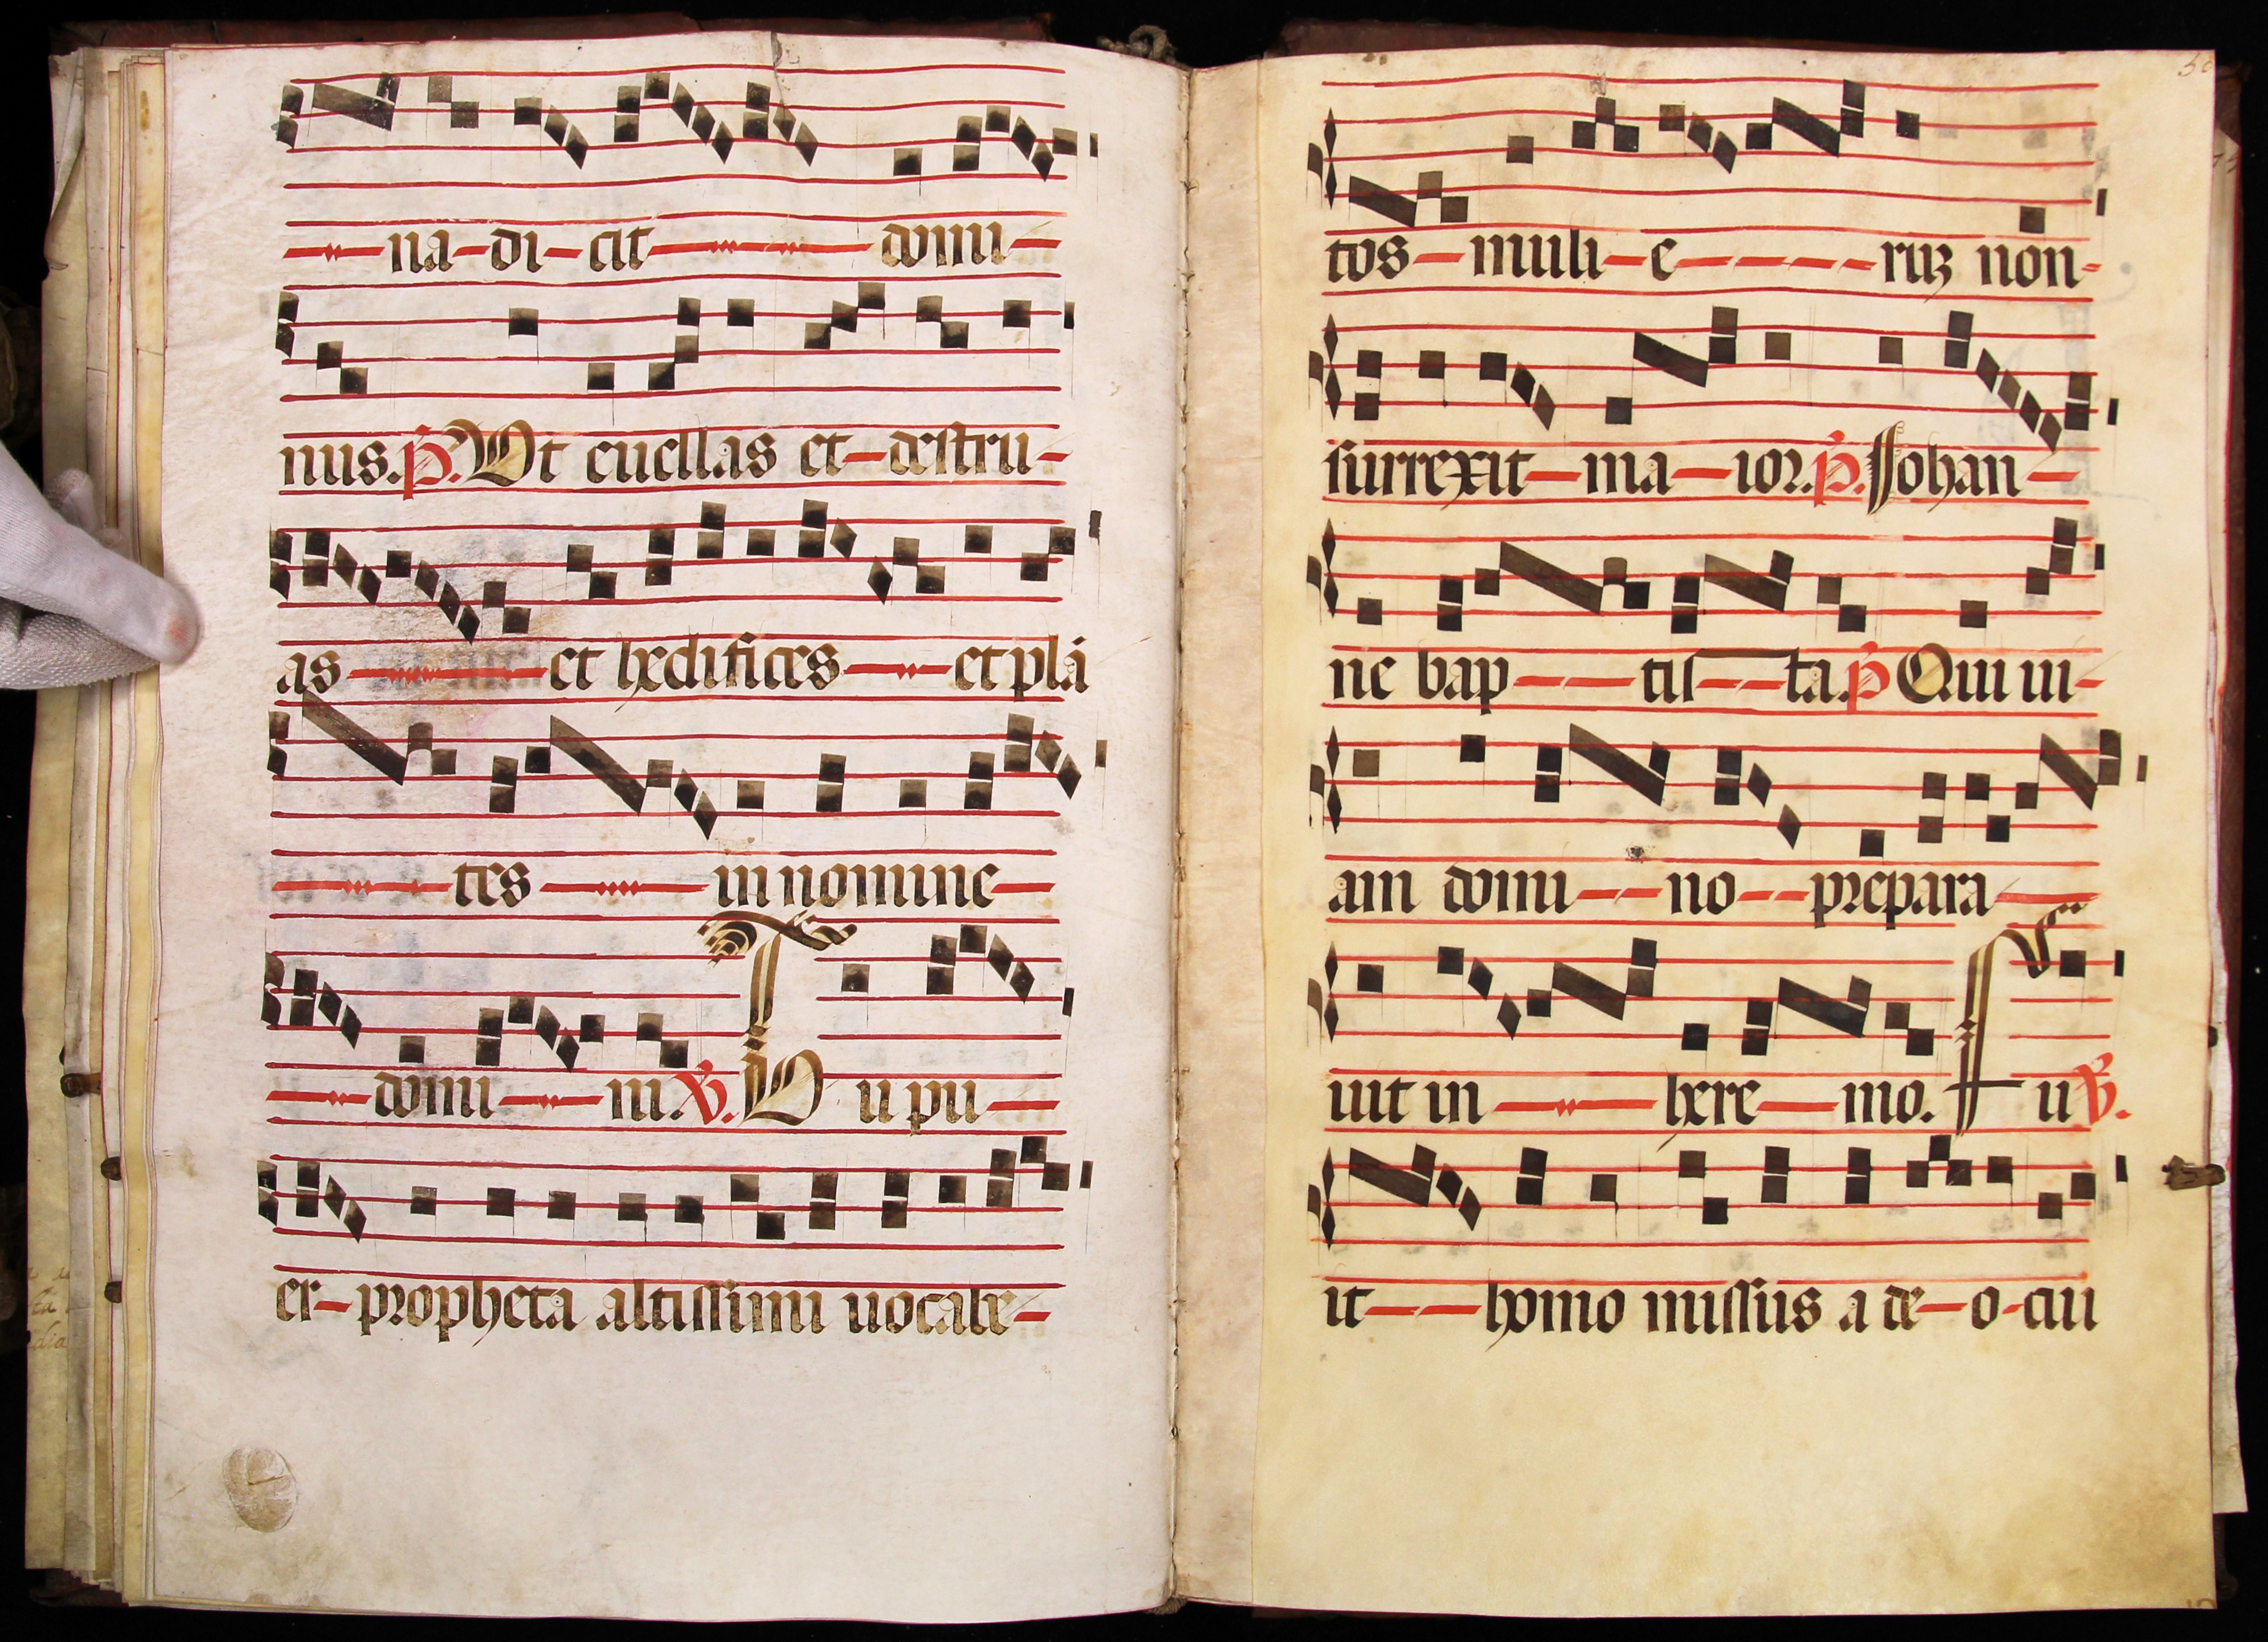 na-di-cit domi-
nus. P. Ut euellas et-destru-
as et hedifices et plā
tes in nomine
domi ni. V. Tu pu
er-propheta altissimi uocabe-
50
tos-muli-e- -rum non-
surrexit-ma-ior. P. Johan-
ne bap- -tis- -ta. P Qui ui-
am domi- -no- -prepara
uit in here- mo. Fu V.
it- -homo missus a de-o-cui